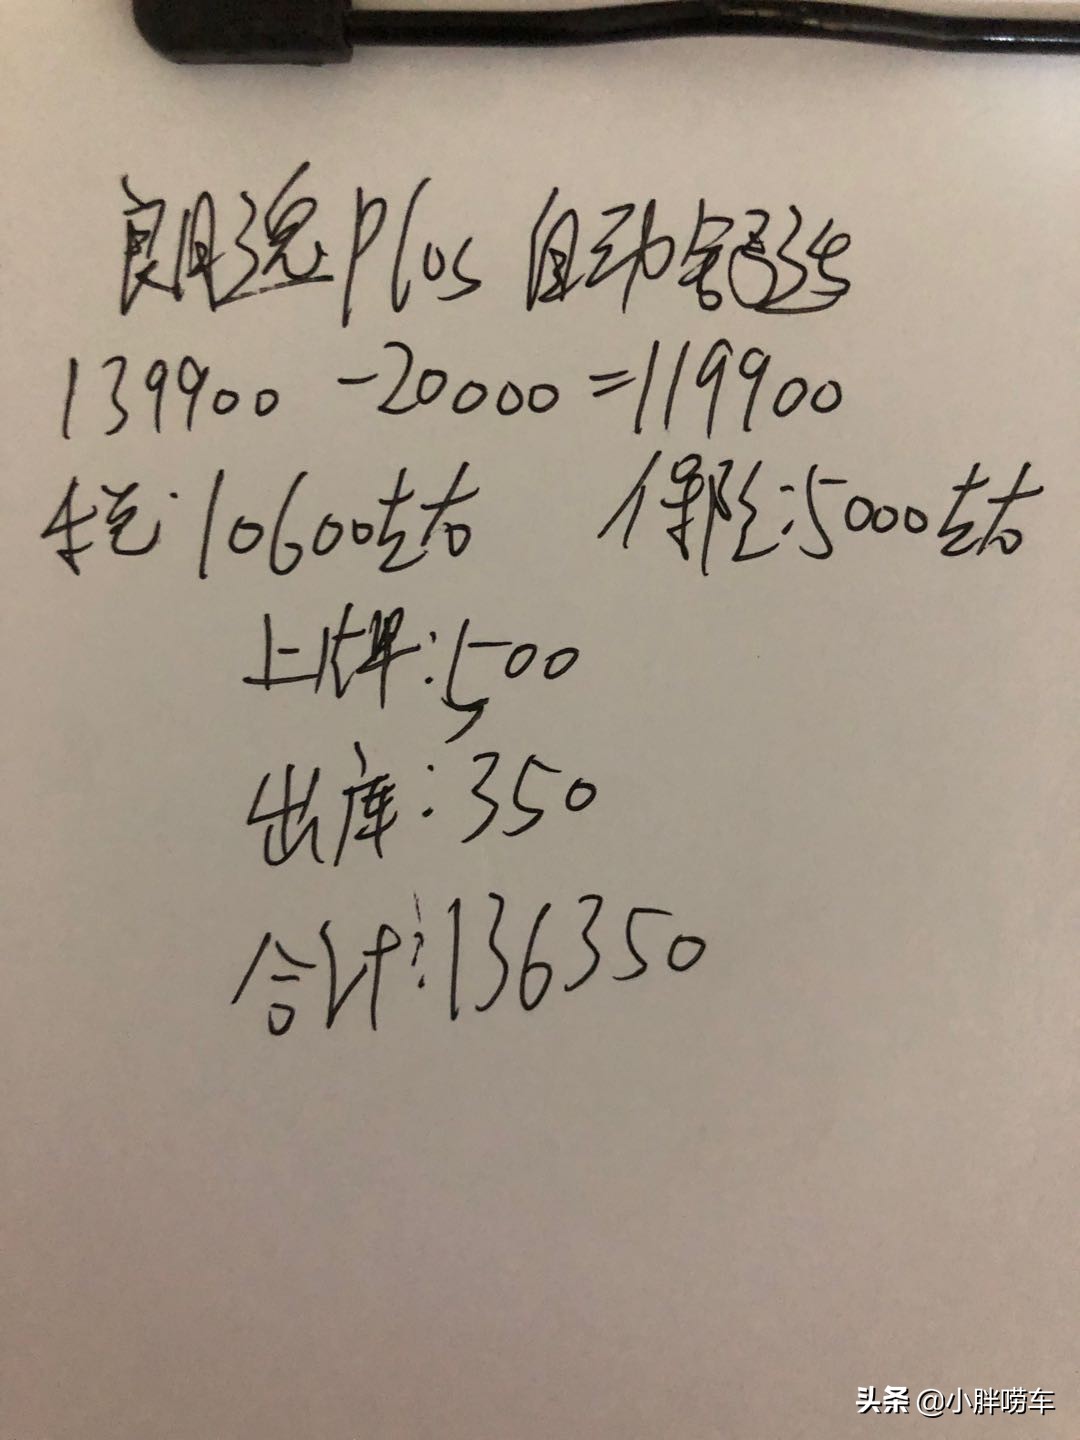 朗逸Plus 自动舒适
139900 -20000=119900
车税:10600左右 保险:5000左右
上牌:500
出库:350
合计:136350
头条 @小胖唠车